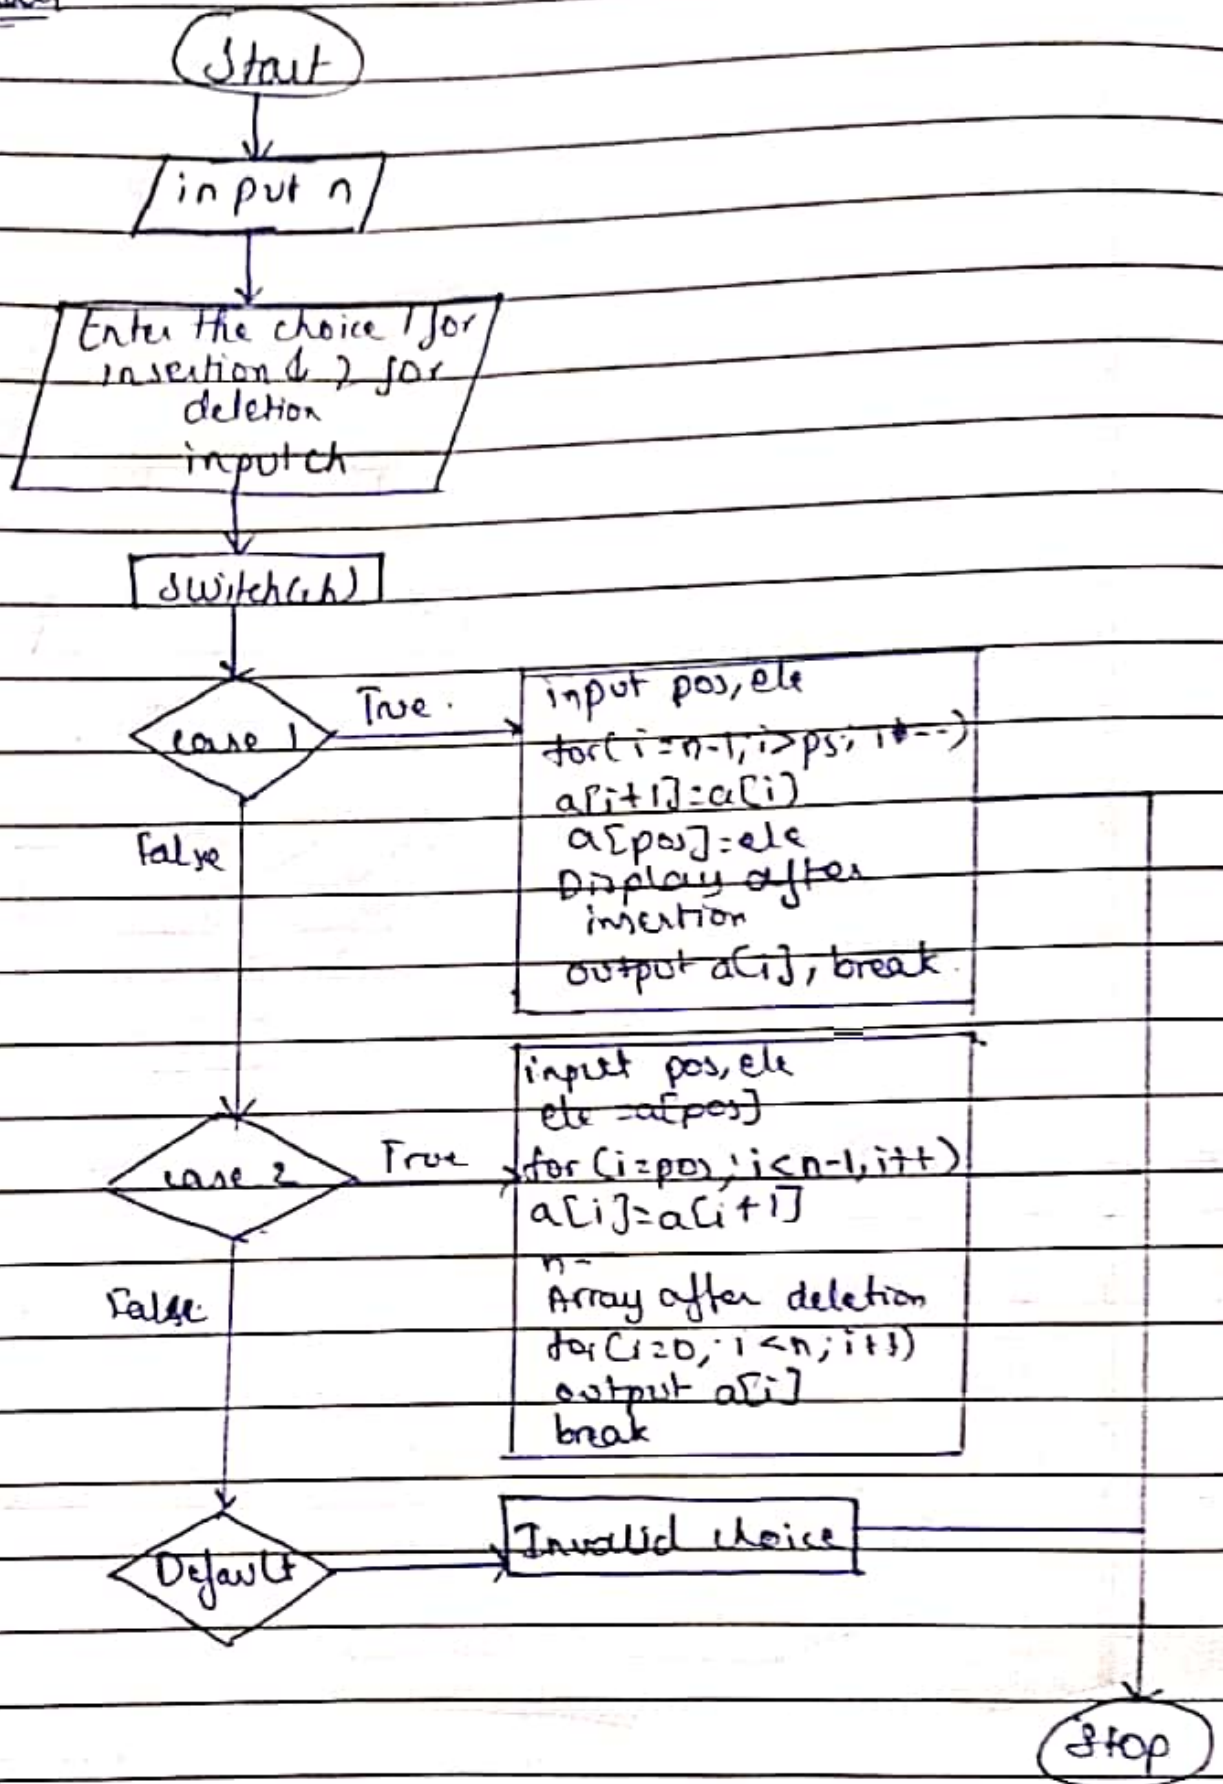 Start
input n
Enter the choice 1 for
insertion & 2 for
deletion
input ch
switch(ch)
case 1
True.
input pos, ele
for(i=n-1; i>ps; i--)
a[i+1]=a[i]
a[pos]=ele
Display after
insertion
output a[i], break.
False
case 2
True
input pos, ele
ele =a[pos]
for (i=pos; i<n-1, i++)
a[i]=a[i+1]
n-
Array after deletion
for(i=0; i<n; i++)
output a[i]
break
False.
Default
Invalid choice
Stop